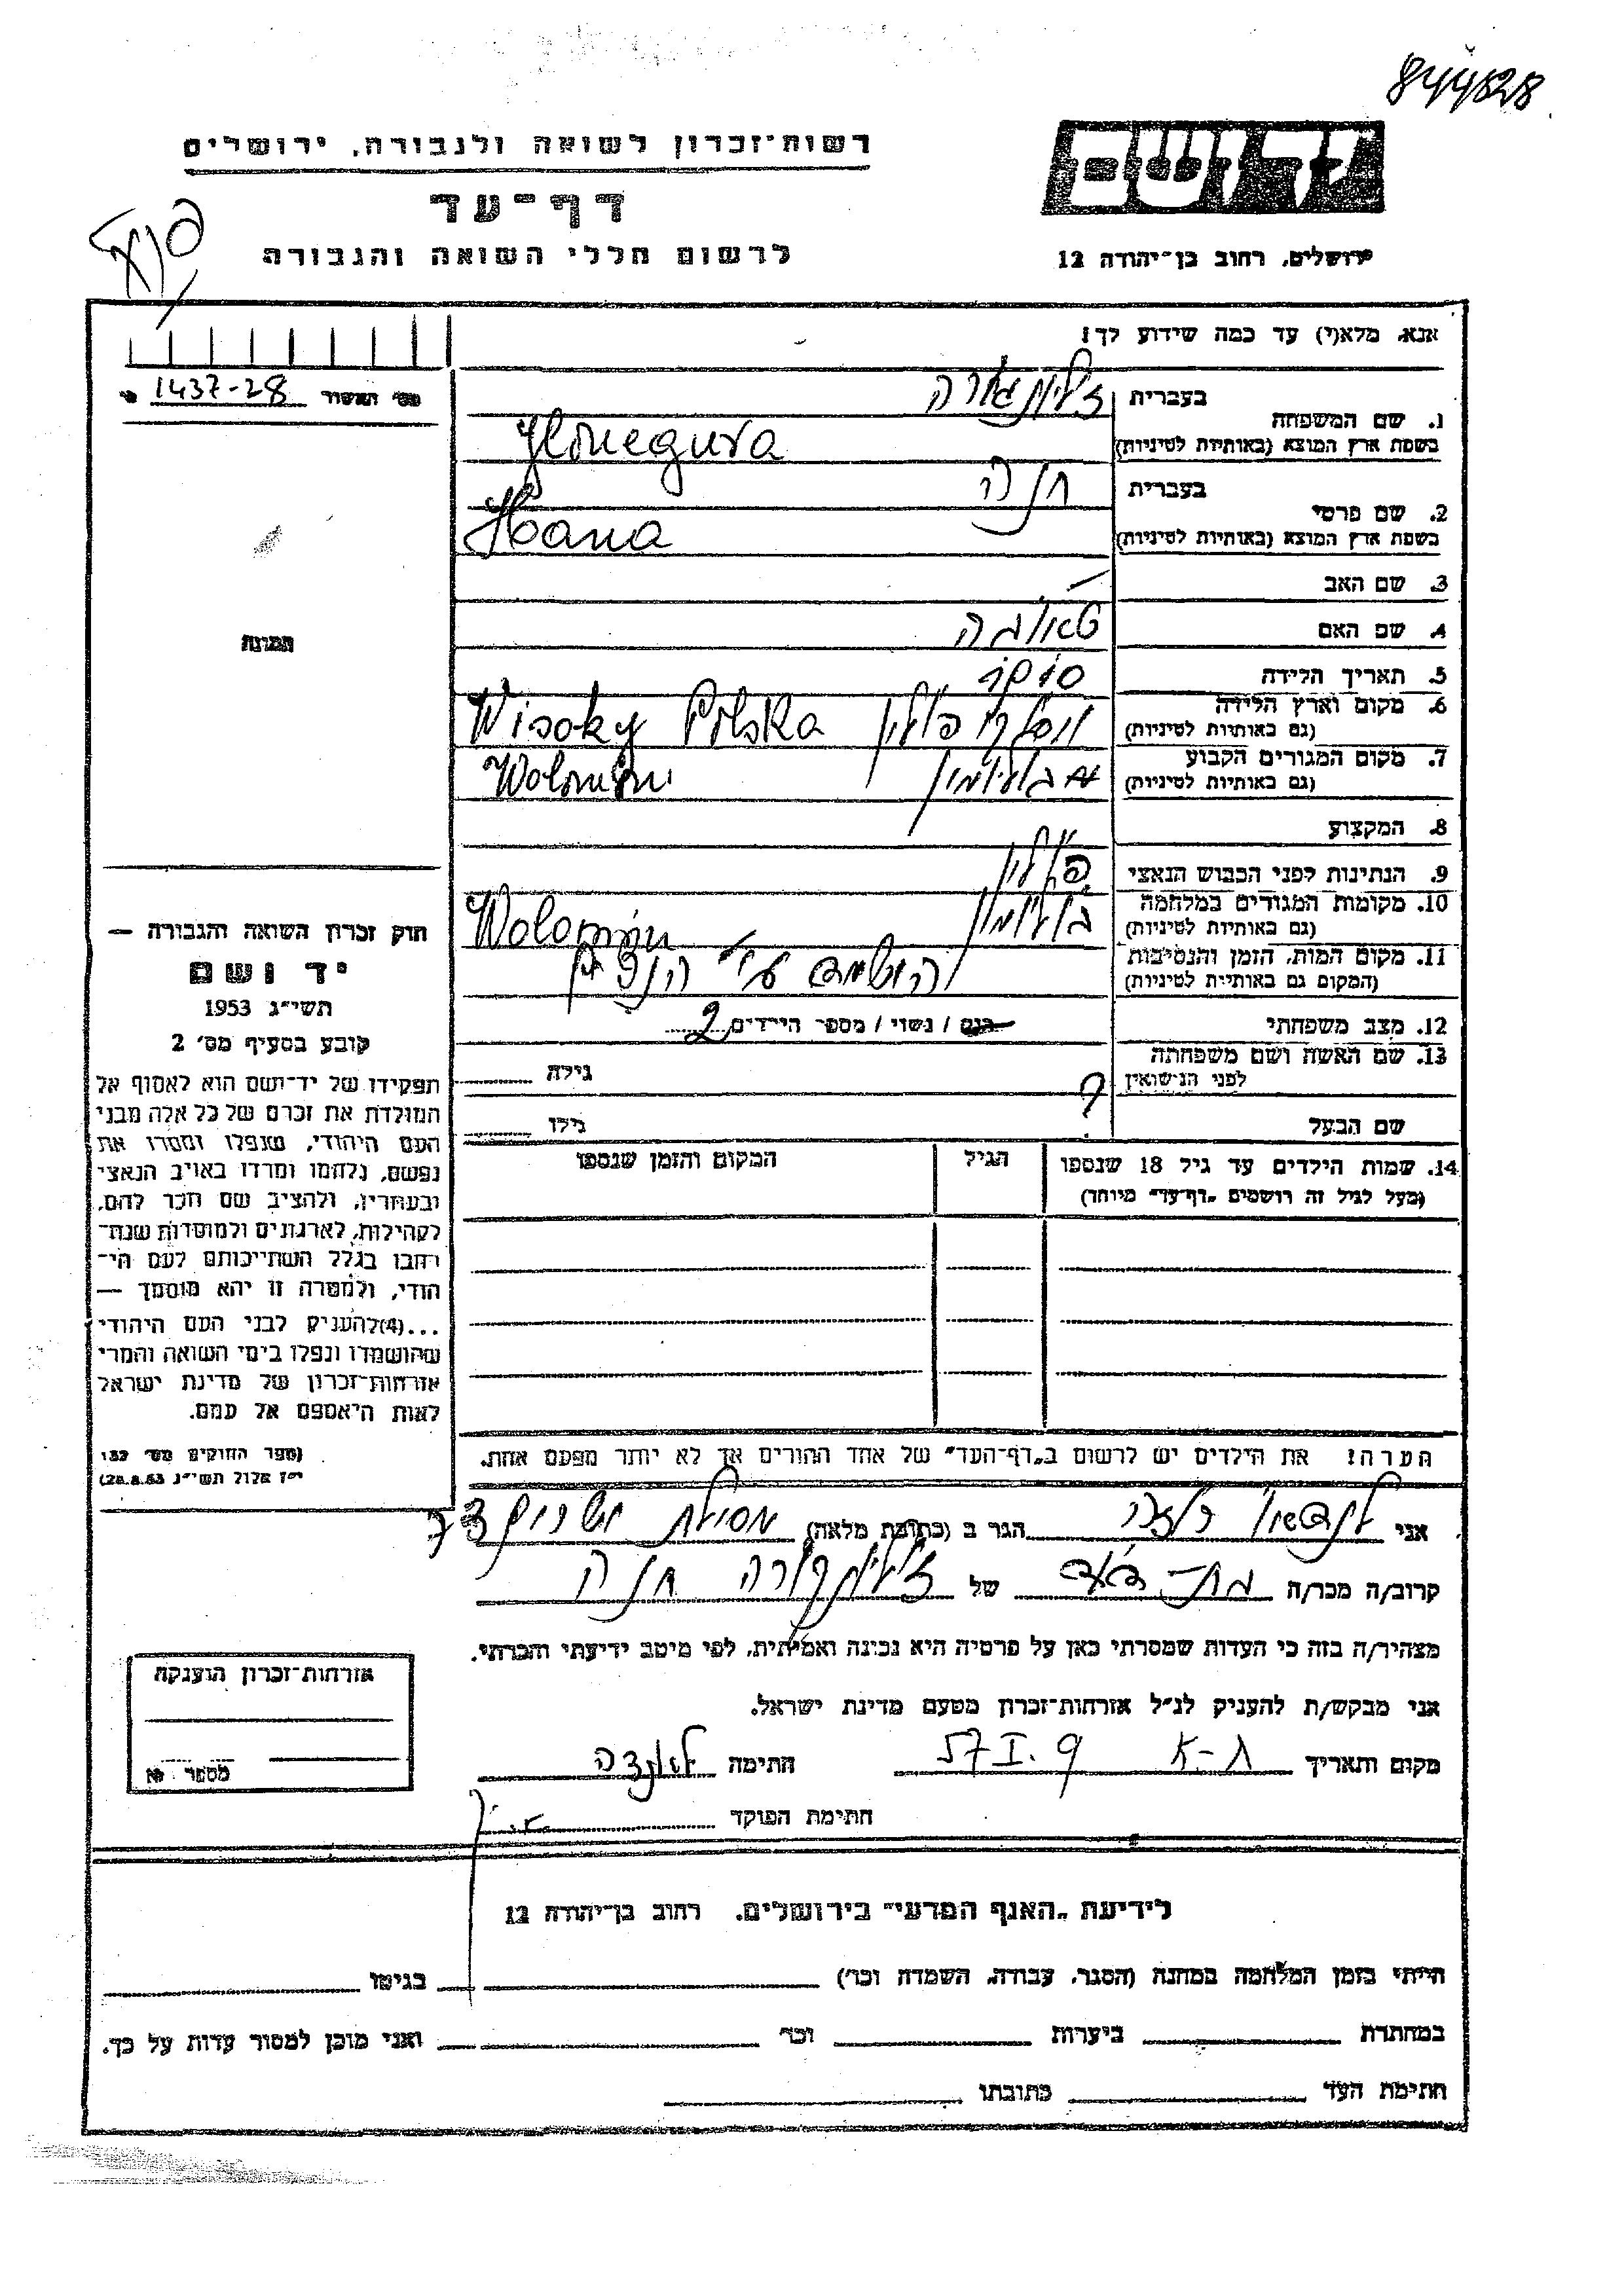 844828
רשות־זכרון לשואה ולגבורה, ירושלים
דף־עד
לרשום חללי השואה והגבורה
ירושלים, רחוב בן־יהודה 12
אנא, מלא(י) עד כמה שידוע לך!
מס׳ האשור 1437-28
בעברית
1. שם המשפחה
בשפת ארץ המוצא (באותיות לטיניות)
בעברית חנה
2. שם פרטי
בשפת ארץ המוצא (באותיות לטיניות) Hana
3. שם האב
4. שם האם
5. תאריך הלידה
6. מקום וארץ הלידה
(גם באותיות לטיניות) Wisoky Polska פולין
7. מקום המגורים הקבוע
(גם באותיות לטיניות) Wolomin
8. המקצוע
9. הנתינות לפני הכבוש הנאצי פולין
10. מקומות המגורים במלחמה
(גם באותיות לטיניות) Wolomin
11. מקום המות, הזמן והנסיבות
(המקום גם באותיות לטיניות) ע״י הנאצים
12. מצב משפחתי רווק / נשוי / מספר הילדים 2
13. שם האשה ושם משפחתה
לפני הנישואין גילה
שם הבעל גילו
תמונה
חוק זכרון השואה והגבורה —
יד ושם
תשי״ג 1953
קובע בסעיף מס׳ 2
תפקידו של יד־ושם הוא לאסוף אל
המולדת את זכרם של כל אלה מבני
העם היהודי, שנפלו ומסרו את
נפשם, נלחמו ומרדו באויב הנאצי
ובעוזריו, ולהציב שם וזכר להם,
לקהילות, לארגונים ולמוסדות שנח־
רבו בגלל השתייכותם לעם הי־
הודי, ולמטרה זו יהא מוסמך —
...(4)להעניק לבני העם היהודי
שהושמדו ונפלו בימי השואה והמרי
אזרחות־זכרון של מדינת ישראל
לאות היאספם אל עמם.
(ספר החוקים מס׳ 132
י״ז אלול תשי״ג 28.8.53)
14. שמות הילדים עד גיל 18 שנספו
(מעל לגיל זה רושמים „דף־עד״ מיוחד)
הגיל
המקום והזמן שנספו
הערה! את הילדים יש לרשום ב„דף־העד״ של אחד ההורים אך לא יותר מפעם אחת.
אני הגר ב (כתובת מלאה)
קרוב/ה מכר/ה בת־דוד של חנה
מצהיר/ה בזה כי העדות שמסרתי כאן על פרטיה היא נכונה ואמיתית, לפי מיטב ידיעתי והכרתי.
אני מבקש/ת להעניק לנ״ל אזרחות־זכרון מטעם מדינת ישראל.
מקום ותאריך ת-א 9 .I 57 חתימה
חתימת הפוקד
אזרחות־זכרון הוענקה
מספר
לידיעת „האגף המדעי״ בירושלים, רחוב בן־יהודה 12
הייתי בזמן המלחמה במחנה (הסגר, עבודה, השמדה וכו׳) בגיטו
במחתרת ביערות וכו׳ ואני מוכן למסור עדות על כך.
חתימת העד כתובתו